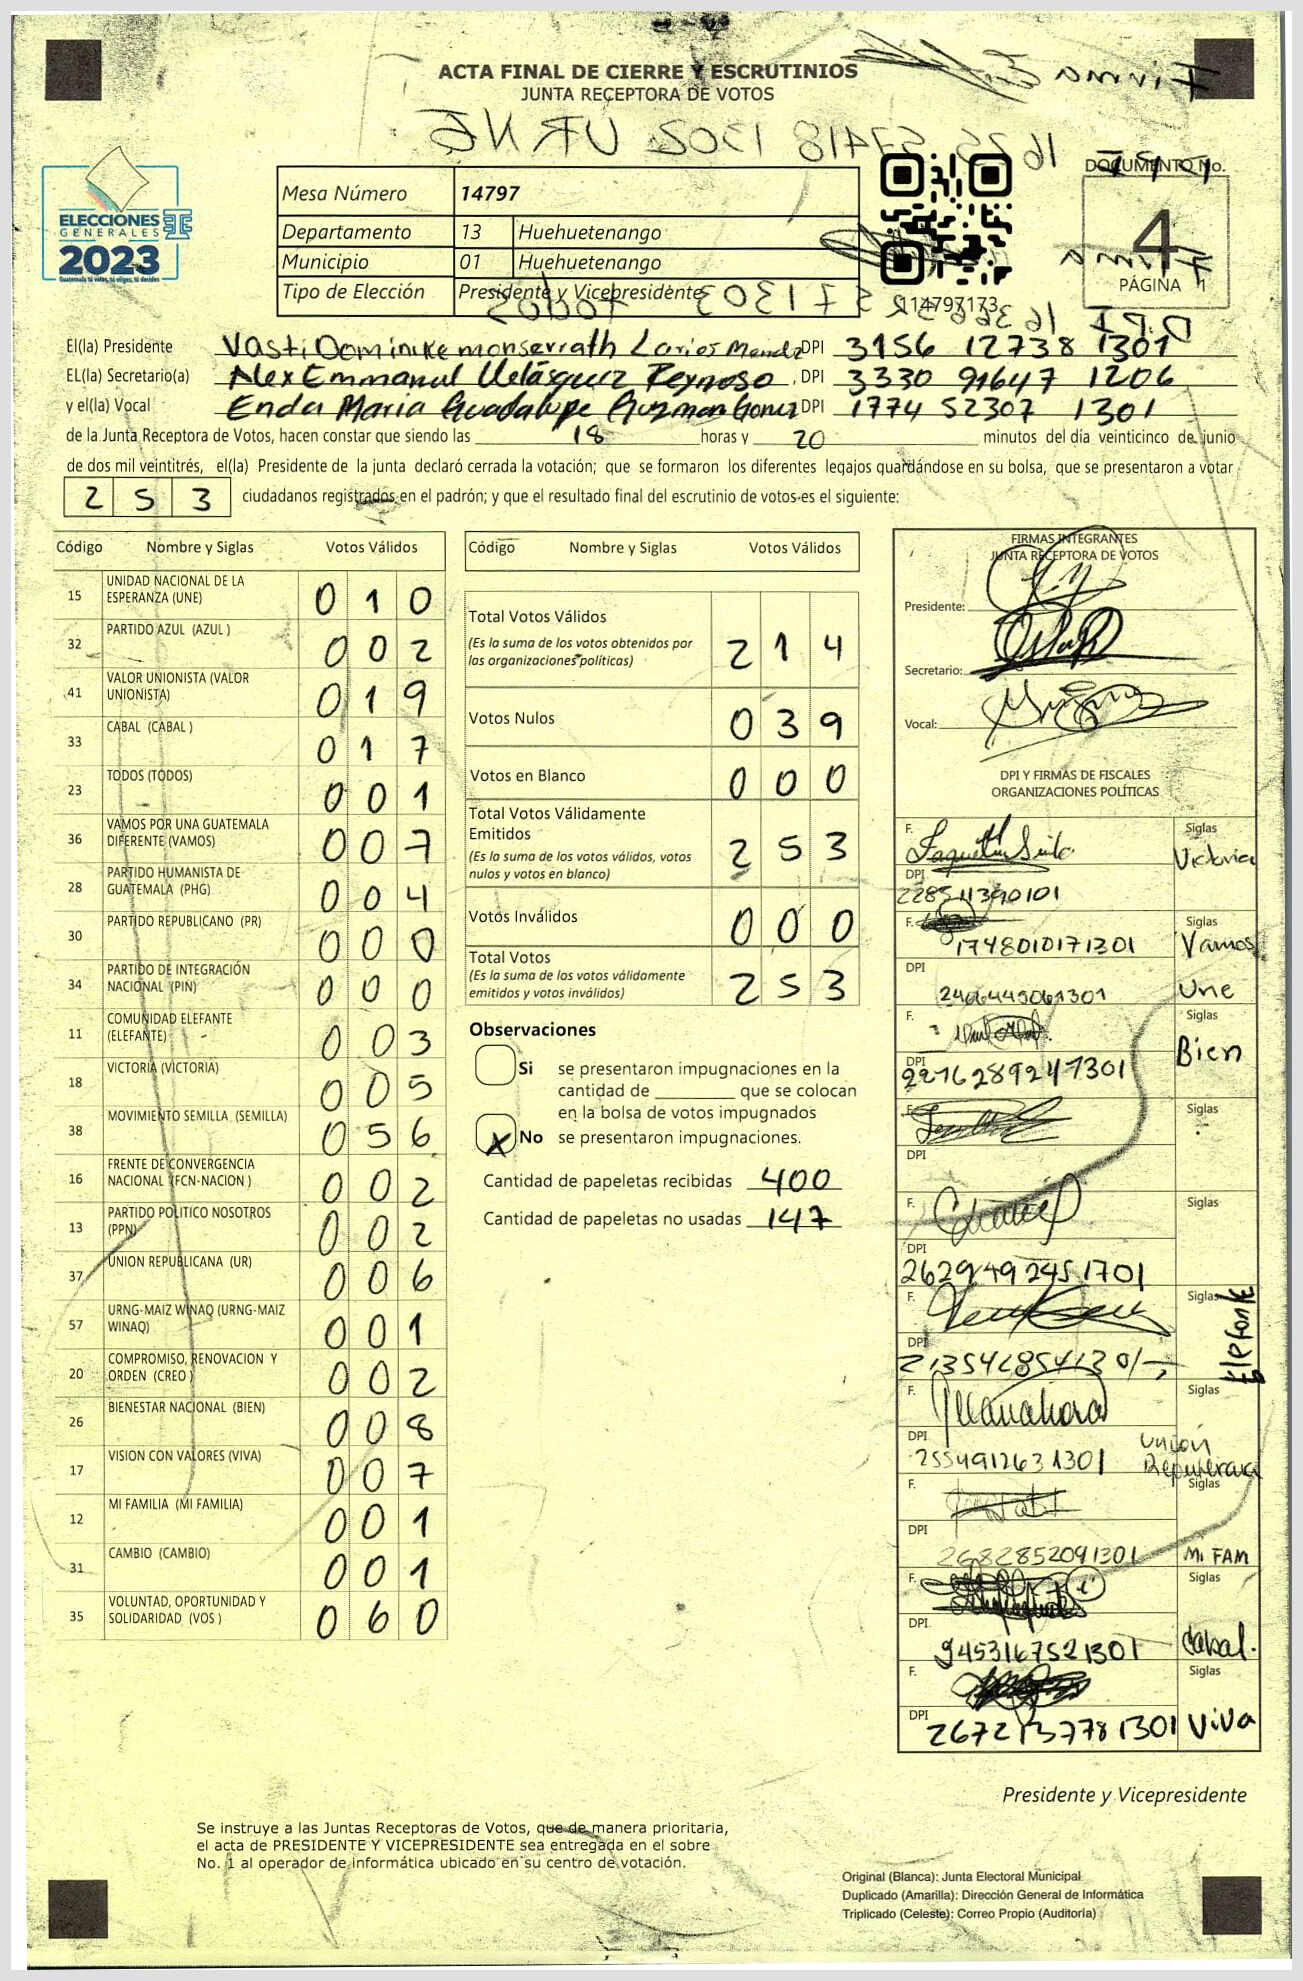 ACTA FINAL DE CIERRE Y ESCRUTINIOS
JUNTA RECEPTORA DE VOTOS
Firma
DOCUMENTO No.
4
PÁGINA 1
ELECCIONES
GENERALES
2023
Guatemala tú votas, tú eliges, tú decides
Mesa Número 14797
Departamento 13 Huehuetenango
Municipio 01 Huehuetenango
Tipo de Elección Presidente y Vicepresidente
114797173
El(la) Presidente Vasti Dominike monserrath Larios Mendz DPI 3156 12738 1301
EL(la) Secretario(a) Alex Emmanul Velásquez Reynoso, DPI 3330 91647 1206
y el(la) Vocal Enda Maria Guadalupe Guzman Gomez DPI 1774 52307 1301
de la Junta Receptora de Votos, hacen constar que siendo las 18 horas y 20 minutos del día veinticinco de junio
de dos mil veintitrés, el(la) Presidente de la junta declaró cerrada la votación; que se formaron los diferentes legajos guardándose en su bolsa, que se presentaron a votar
2 5 3 ciudadanos registrados en el padrón; y que el resultado final del escrutinio de votos es el siguiente:
Código Nombre y Siglas Votos Válidos
15 UNIDAD NACIONAL DE LA ESPERANZA (UNE) 0 1 0
32 PARTIDO AZUL (AZUL ) 0 0 2
41 VALOR UNIONISTA (VALOR UNIONISTA) 0 1 9
33 CABAL (CABAL ) 0 1 7
23 TODOS (TODOS) 0 0 1
36 VAMOS POR UNA GUATEMALA DIFERENTE (VAMOS) 0 0 7
28 PARTIDO HUMANISTA DE GUATEMALA (PHG) 0 0 4
30 PARTIDO REPUBLICANO (PR) 0 0 0
34 PARTIDO DE INTEGRACIÓN NACIONAL (PIN) 0 0 0
11 COMUNIDAD ELEFANTE (ELEFANTE) 0 0 3
18 VICTORIA (VICTORIA) 0 0 5
38 MOVIMIENTO SEMILLA (SEMILLA) 0 5 6
16 FRENTE DE CONVERGENCIA NACIONAL (FCN-NACION ) 0 0 2
13 PARTIDO POLITICO NOSOTROS (PPN) 0 0 2
37 UNION REPUBLICANA (UR) 0 0 6
57 URNG-MAIZ WINAQ (URNG-MAIZ WINAQ) 0 0 1
20 COMPROMISO, RENOVACION Y ORDEN (CREO ) 0 0 2
26 BIENESTAR NACIONAL (BIEN) 0 0 8
17 VISION CON VALORES (VIVA) 0 0 7
12 MI FAMILIA (MI FAMILIA) 0 0 1
31 CAMBIO (CAMBIO) 0 0 1
35 VOLUNTAD, OPORTUNIDAD Y SOLIDARIDAD (VOS ) 0 6 0
Código Nombre y Siglas Votos Válidos
Total Votos Válidos
(Es la suma de los votos obtenidos por
las organizaciones políticas) 2 1 4
Votos Nulos 0 3 9
Votos en Blanco 0 0 0
Total Votos Válidamente
Emitidos
(Es la suma de los votos válidos, votos
nulos y votos en blanco) 2 5 3
Votos Inválidos 0 0 0
Total Votos
(Es la suma de los votos válidamente
emitidos y votos inválidos) 2 5 3
Observaciones
Si se presentaron impugnaciones en la
cantidad de que se colocan
en la bolsa de votos impugnados
X No se presentaron impugnaciones.
Cantidad de papeletas recibidas 400
Cantidad de papeletas no usadas 147
FIRMAS INTEGRANTES
JUNTA RECEPTORA DE VOTOS
Presidente:
Secretario:
Vocal:
DPI Y FIRMAS DE FISCALES
ORGANIZACIONES POLÍTICAS
F. Siglas
Victoria
DPI
228511390101
F. Siglas
1748010171301 Vamos
DPI
2466445061301 Une
F. Siglas
Bien
DPI
2276289247301
F. Siglas
DPI
F. Siglas
DPI
2629492451701
F. Siglas
Elefante
DPI
F. Siglas
DPI
2554912631301 Unión
F. Siglas
DPI
2682852091301 Mi FAM
F. Siglas
DPI
9453167521301 Cabal.
F. Siglas
DPI
2672137781301 ViVa
Presidente y Vicepresidente
Se instruye a las Juntas Receptoras de Votos, que de manera prioritaria,
el acta de PRESIDENTE Y VICEPRESIDENTE sea entregada en el sobre
No. 1 al operador de informática ubicado en su centro de votación.
Original (Blanca): Junta Electoral Municipal
Duplicado (Amarilla): Dirección General de Informática
Triplicado (Celeste): Correo Propio (Auditoría)